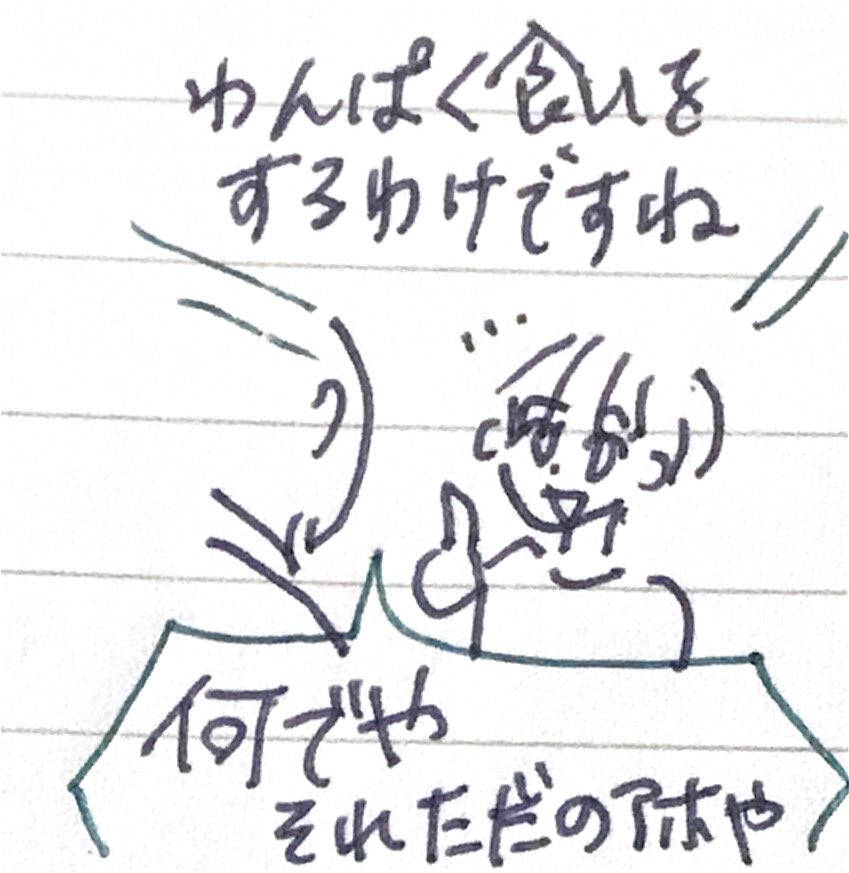 わんぱく食いを
するわけですね
何でや
それただのアホや